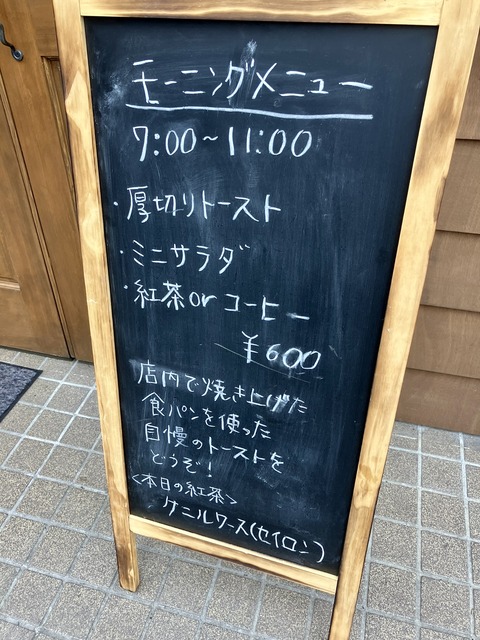 モーニングメニュー
7:00~11:00
・厚切りトースト
・ミニサラダ
・紅茶orコーヒー
¥600
店内で焼き上げた
食パンを使った
自慢のトーストを
どうぞ!
<本日の紅茶>
ケニルワース(セイロン)